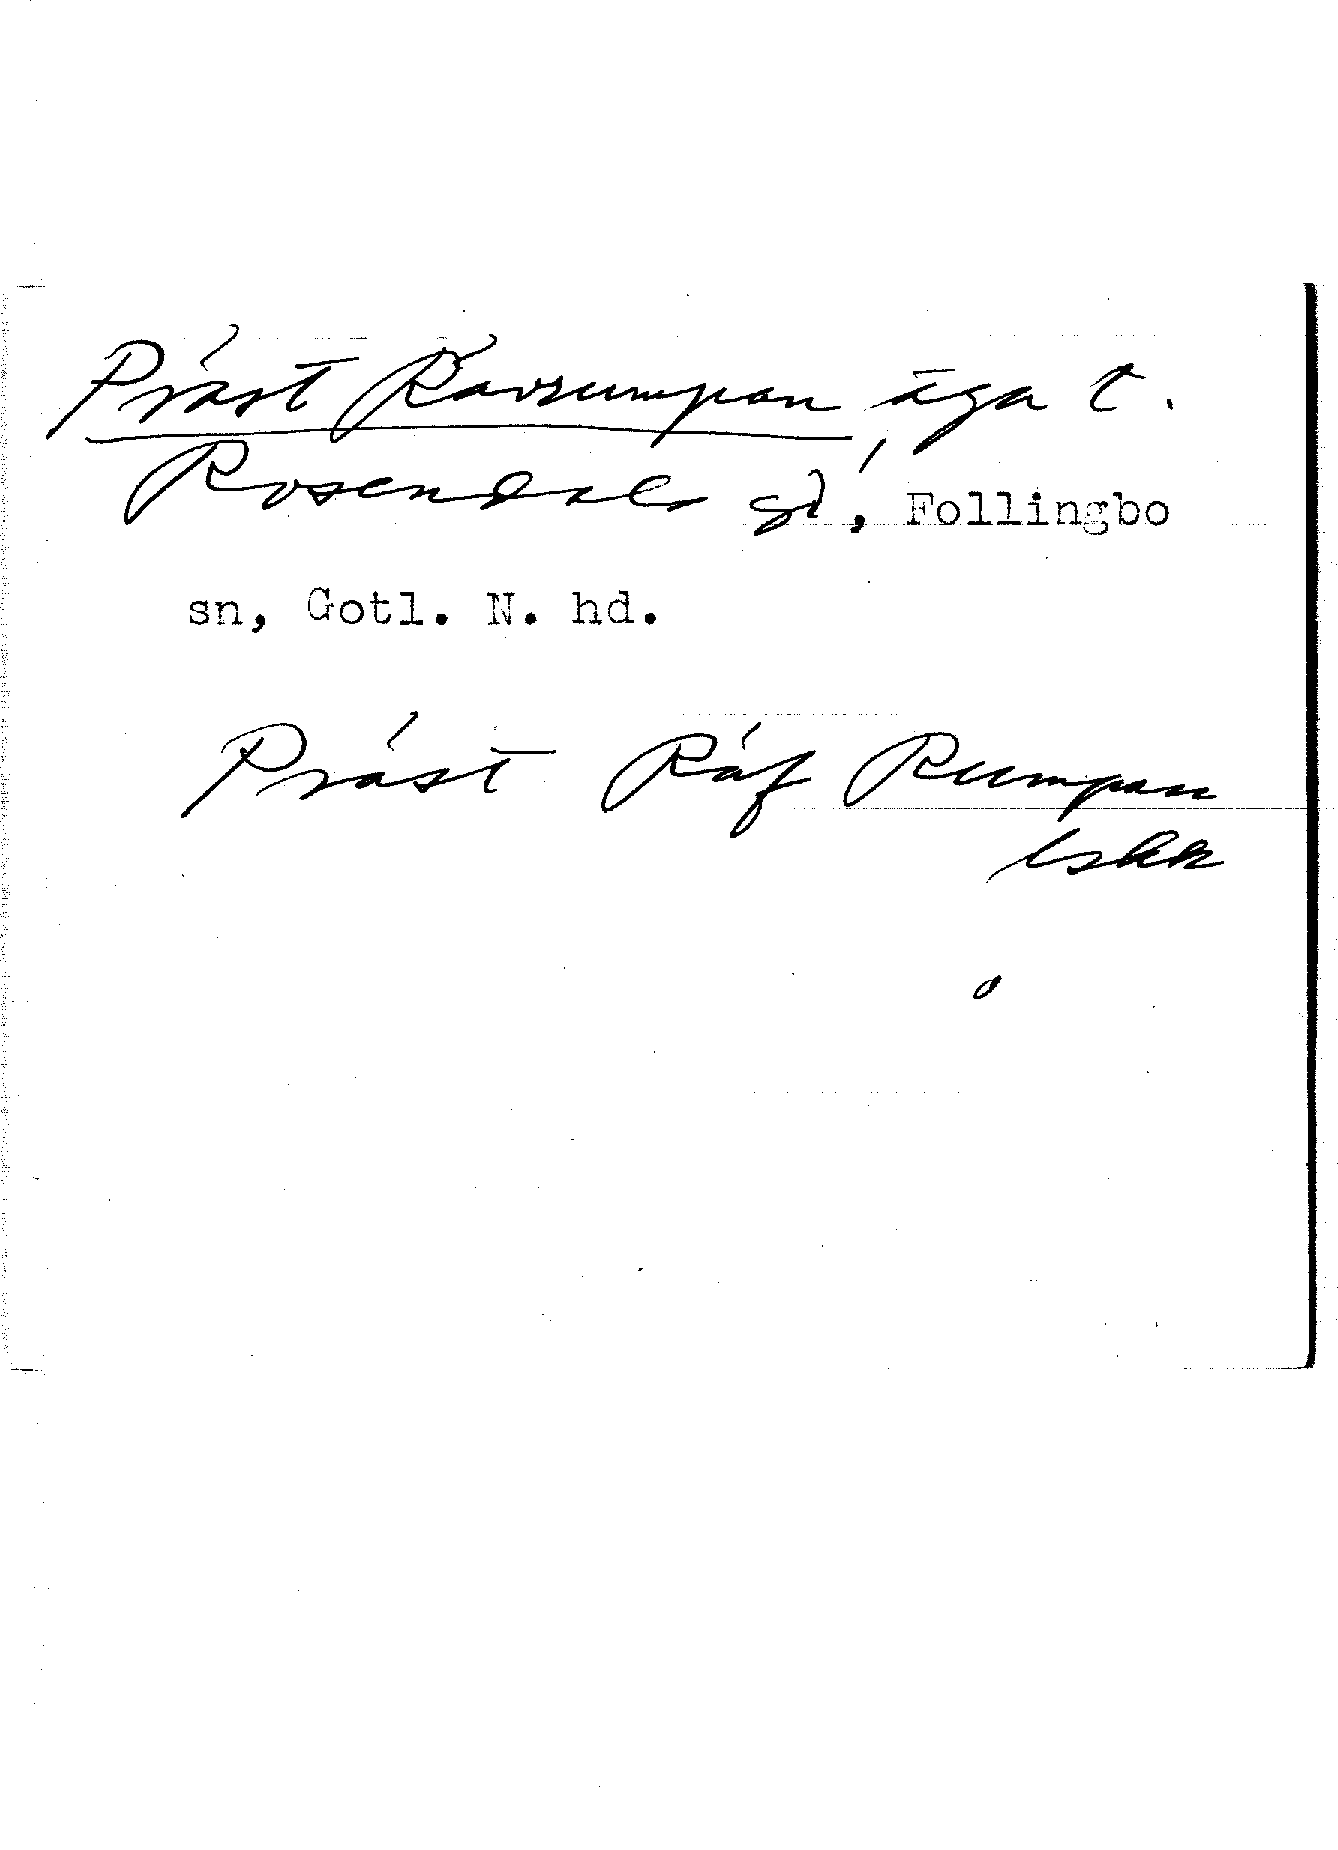 Präst Rävrumpan, äga t.
Rosendals gd, Follingbo
sn, Gotl. N. hd.
Präst Räf Rumpan